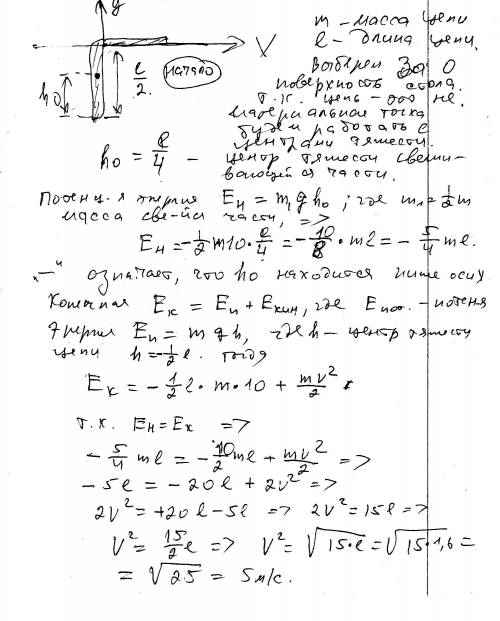 y
m - масса цепи
l - длина цепи.
X
начало
Выберем За 0
l/2
h0
поверхность стола.
т.к. цепь - это не
материальная точка
будем работать с
центрами тяжести.
h0 = l/4 - центр тяжести свеши-
вающейся части.
Потенц-я энергия Eн = m1gh0; где m1 = 1/2 m
масса све-йся части, =>
Eн = -1/2 m10·l/4 = -10/8·ml = -5/4 ml.
"-" означает, что h0 находится ниже оси x
Конечная Eк = Eп + Eкин, где Eпот. - потенц
Энергия Eп = mgh, где h - центр тяжести
цепи h = -1/2 l. тогда
Eк = -1/2 l·m·10 + mv²/2
т.к. Eн = Eк =>
-5/4 ml = -10/2 ml + mv²/2 =>
-5l = -20l + 2v² =>
2v² = +20l - 5l => 2v² = 15l =>
V² = 15/2 l => V² = √15·l = √15·1,6 =
= √25 = 5м/с.